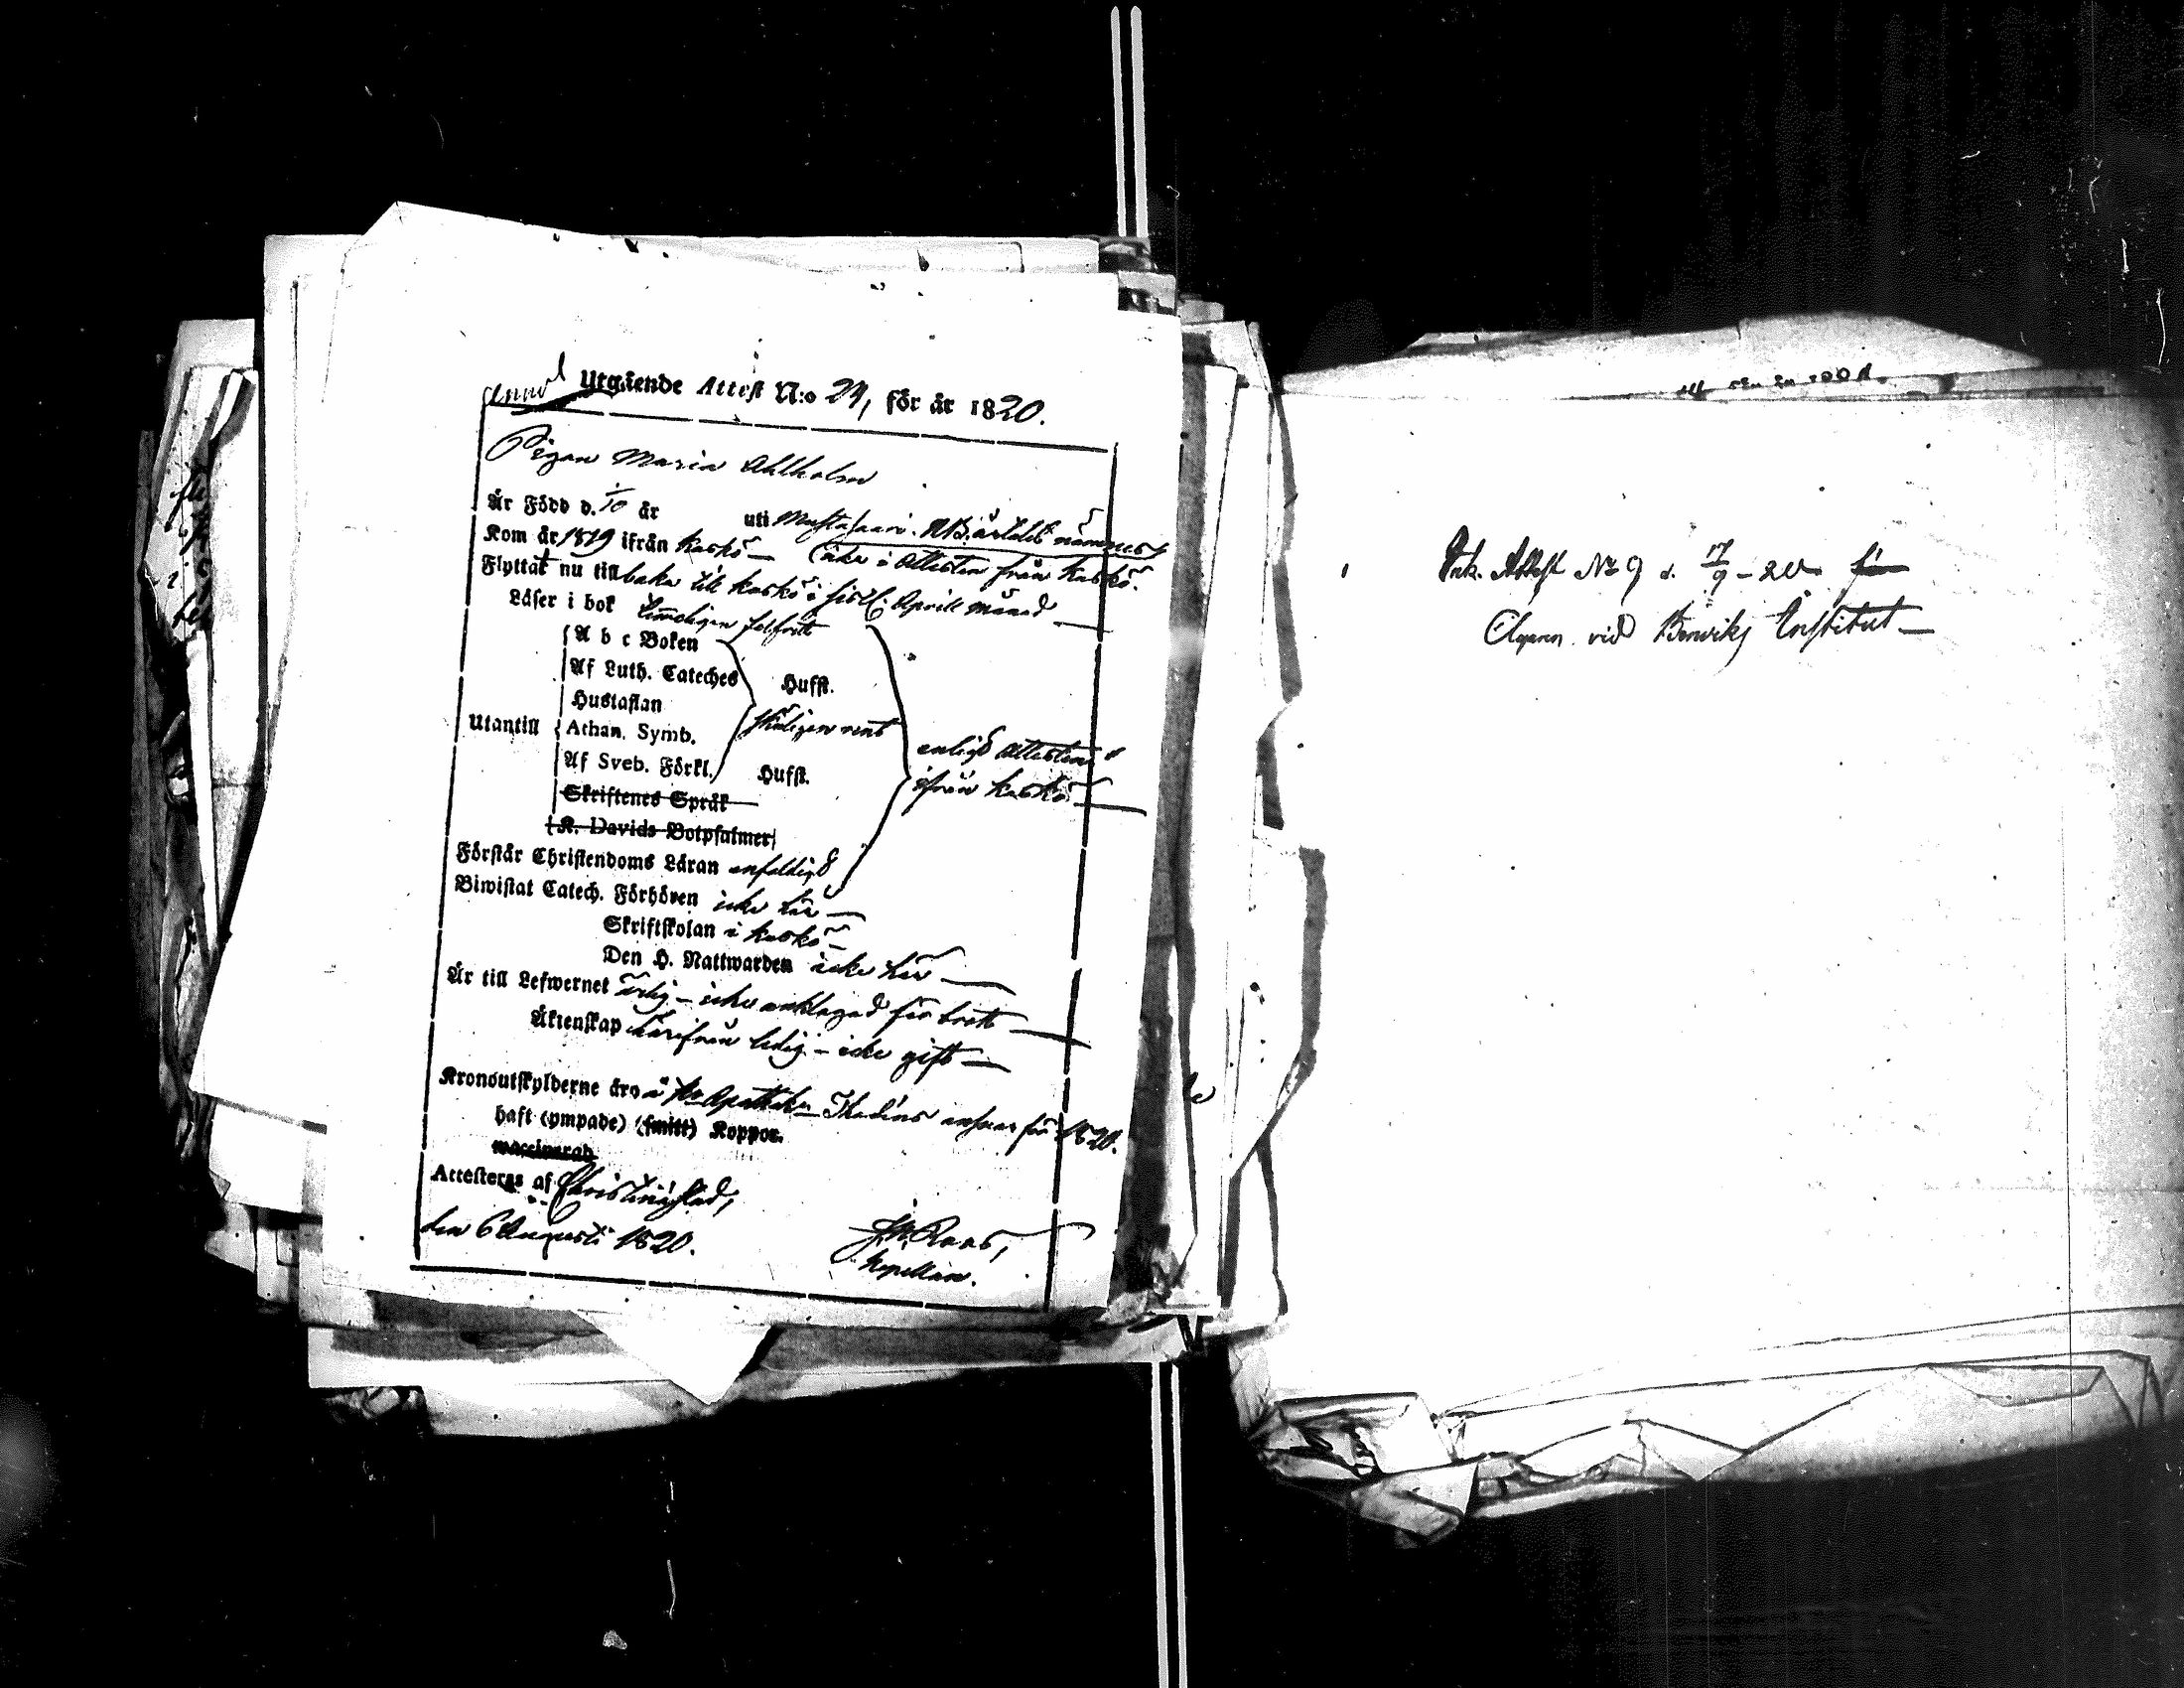 Utgående Attest N:o 24, för år 1820.
Pigan Maria Ahlholm
Är Född d. 1/10 år uti Mustasaari. NB. årtalet nämnes
Kom år 1819 ifrån Kaskö — icke i Attesten från Kaskö.
Flyttat nu tillbaka till Kaskö i sistl. Aprill månad —
Läser i bok temligen felfritt
A b c Boken
Af Luth. Cateches Hufst.
Hustaflan
Utantill Athan. Symb. skäligen rent enligt Attesten
Af Sveb. Förkl. Hufst. ifrån Kaskö —
Skriftenes Språk
K. Davids Botpsalmer
Förstår Christendoms Läran enfaldigt
Biwistat Catech. Förhören icke här —
Skriftskolan i Kaskö —
Den H. Nattwarden icke här —
Är till Lefwernet ärlig — icke anklagad för brott —
Äktenskap härifrån ledig — icke gift —
Kronoutskylderne äro å Apothek. answar för 1820.
haft (ympade) (smitt) Koppor.
waccinerad
Attesteras af Christinæstad,
den 6 Augusti 1820. Roos,
Kapellan.
Ink. Attest No 9 d. 17/9 - 20
vid Institut —